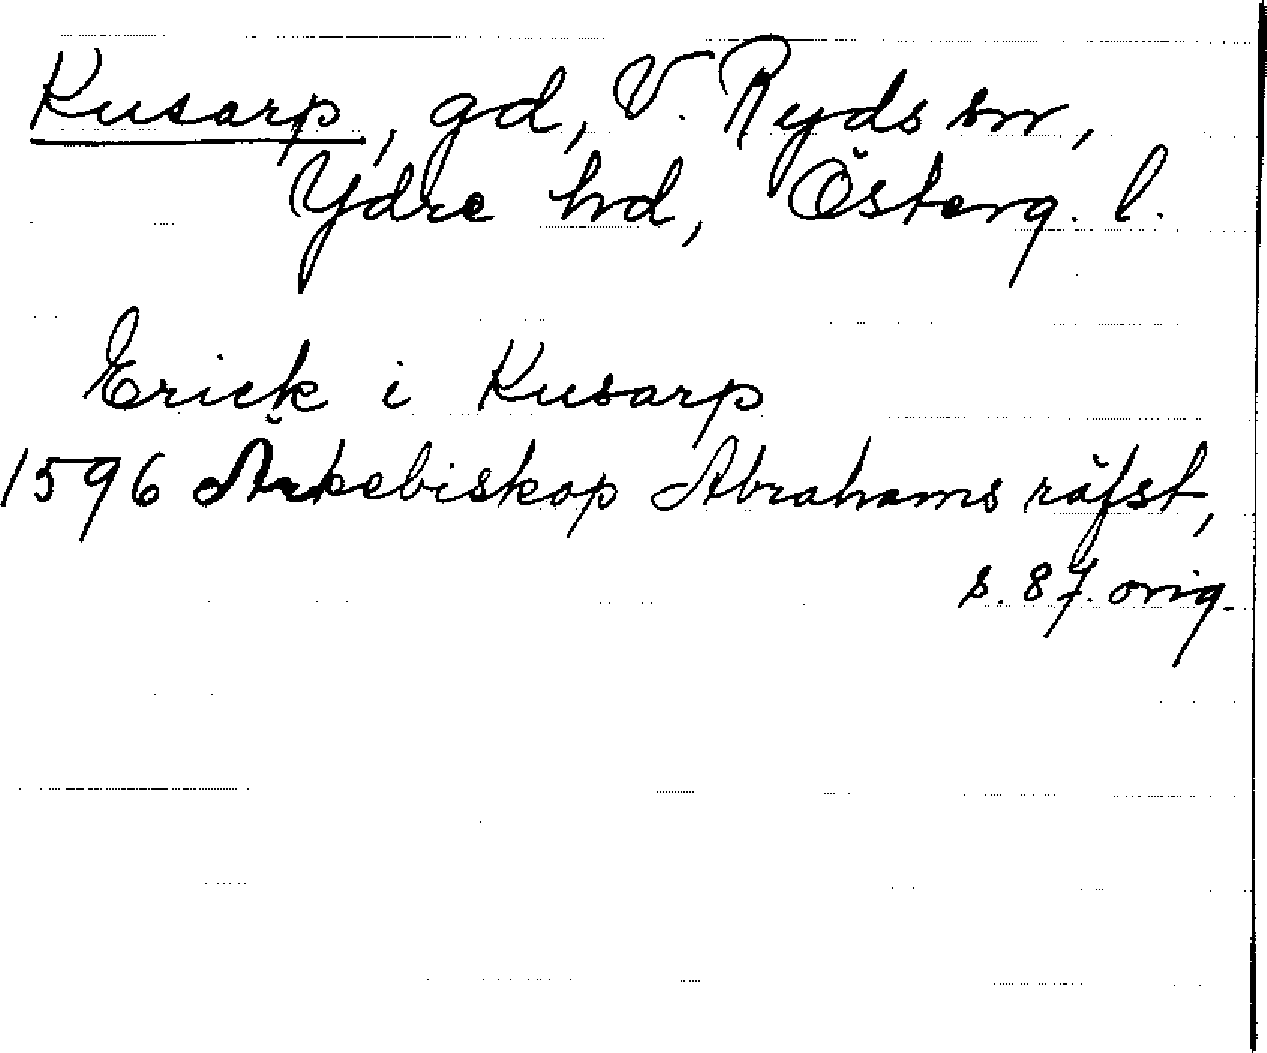 Kusarp, gd, V. Ryds sn,
Ydre hd, Österg. l.
Erick i Kusarp
1596 Ärkebiskop Abrahams räfst,
s. 87. orig.